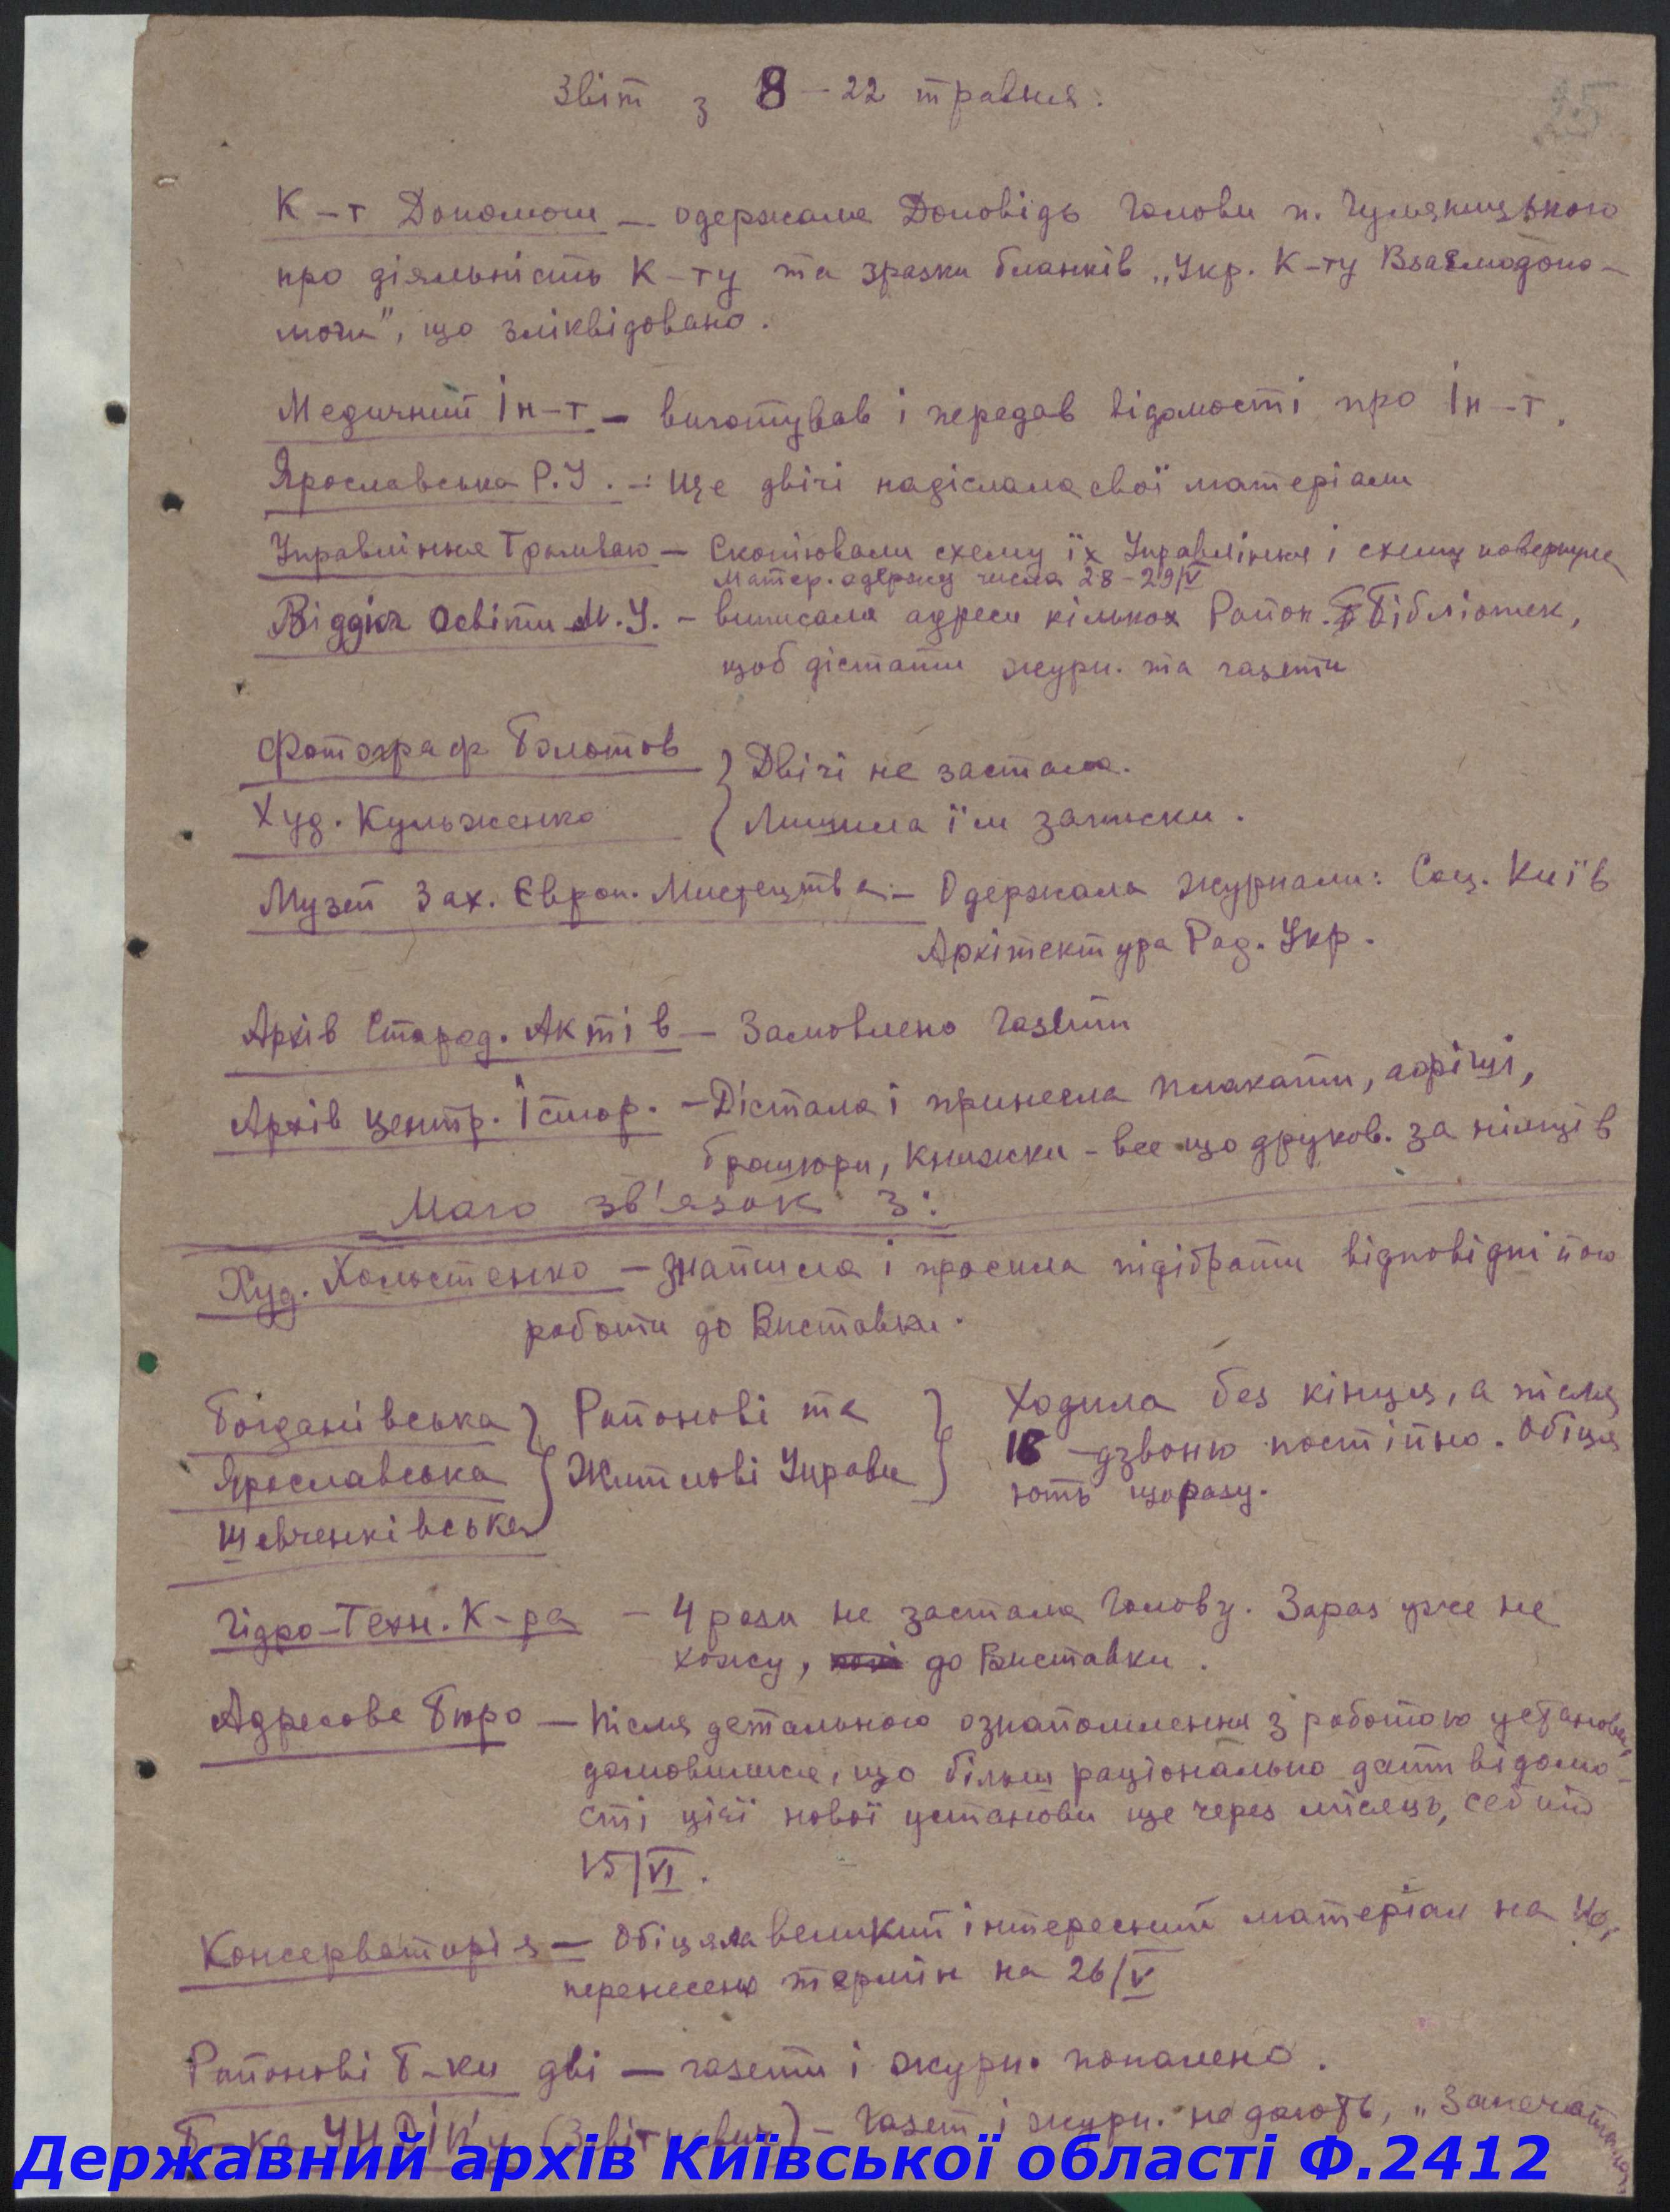 Звіт з 8 – 22 травня.
К-т Допомоги – одержала Доповідь Голови п.
про діяльність К-ту та зразки бланків „Укр. К-ту Взаємодопо-
моги", що зліквідовано.
Медичний Ін-т – виготував і передав відомості про Ін-т.
Ярославська Р.У. – ще двічі надіслала свої матеріали
Управління Трамваю – Скопіювали схему їх Управління і схему повернула
Матер. одержу числа 28-29/V
Відділ Освіти М.У. – виписала адреси кількох Район. Бібліотек,
щоб дістати журн. та газети
Фотограф Болотов } Двічі не застала.
Худ. Кульженко } Лишила їм записки.
Музей Зах. Європ. Мистецтва – Одержала журнали: Соц. Київ
Архітектура Рад. Укр.
Архів Старод. Актів – Замовлено газети
Архів центр. Істор. – Дістала і принесла плакати, афіші,
брошюри, книжки – все що друков. за німців
Маю зв'язок з:
Худ. Хольстенко – знайшла і просила підібрати відповідні його
роботи до Виставки.
Богданівська } Районові та } Ходила без кінця, а після
Ярославська } Житлові Управи } 18 – дзвоню постійно. Обіця
Шевченківська } ють щоразу.
Гідро-Техн. К-ра – 4 рази не застала Голову. Зараз уже не
хожу, до Виставки.
Адресове Бюро – Після детального ознайомлення з роботою установи,
домовилися, що більш раціонально дати відомо-
сті цієї нової установи ще через місяць, себто
15/VI.
Консерваторія – Обіцяла великий інтересний матеріал на
перенесено термін на 26/V
Районові Б-ки дві – газети і журн. попалено.
Б-ка УНДІП'у – Газет і журн. не дають, „Запечатана
Державний архів Київської області Ф.2412